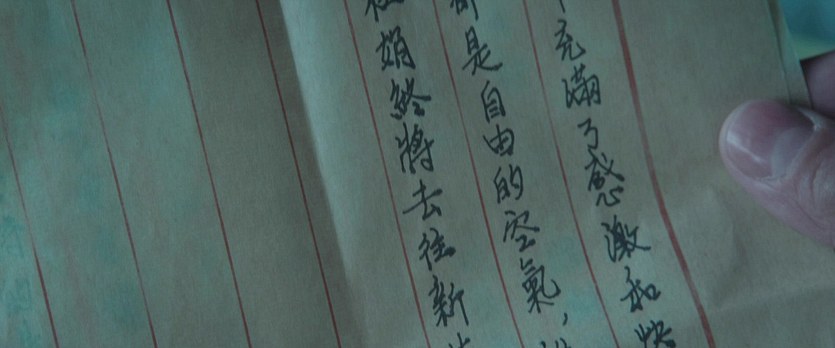 充滿了感激和快
都是自由的空氣，
娟終將去往新